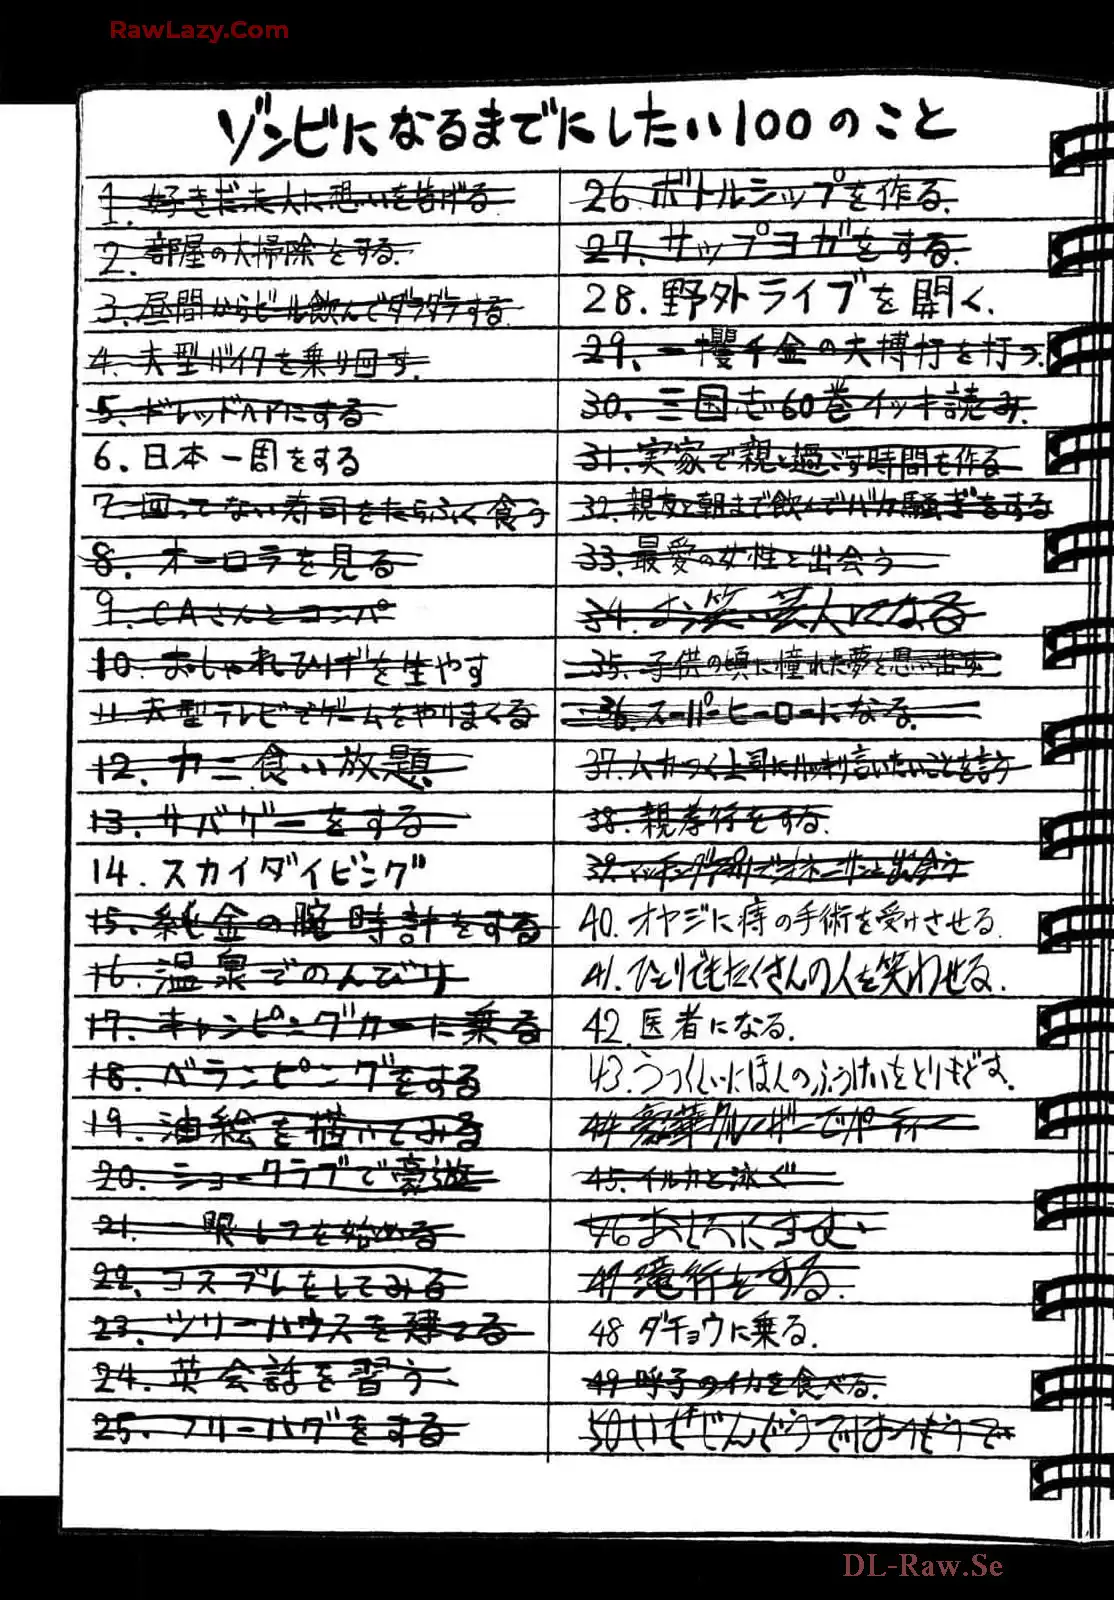 RawLazy.Com
ゾンビになるまでにしたい100のこと
1. 好きだった人に想いを告げる
2. 部屋の大掃除をする.
3. 昼間からビール飲んでダラダラする.
4. 大型バイクを乗り回す.
5. ドレッドヘアにする
6. 日本一周をする
7. 回ってない寿司をたらふく食う
8. オーロラを見る
9. CAさんとコンパ
10. おしゃれひげを生やす
11. 大型テレビでゲームをやりまくる
12. カニ食い放題
13. サバゲーをする
14. スカイダイビング
15. 純金の腕時計をする
16. 温泉でのんびり
17. キャンピングカーに乗る
18. ベランピングをする
19. 油絵を描いてみる
20. ショークラブで豪遊
21. 一眼レフを始める
22. コスプレをしてみる
23. ツリーハウスを建てる
24. 英会話を習う
25. フリーハグをする
26. ボトルシップを作る.
27. サップヨガをする.
28. 野外ライブを開く.
29. 一攫千金の大博打を打つ.
30. 三国志60巻イッキ読み.
31. 実家で親と過ごす時間も作る
32. 親友と朝まで飲んでバカ騒ぎをする
33. 最愛の女性と出会う
34. お笑い芸人になる
35. 子供の頃に憧れた夢を思い出す
36. スーパーヒーローになる.
37. ムカつく上司にハッキリ言いたいことを言う
38. 親孝行をする.
39. マッチングアプリでツオネーサンと出会う
40. オヤジに痔の手術を受けさせる.
41. ひとりでもたくさんの人を笑わせる.
42. 医者になる.
43. うつくしいにほんのふうけいをとりもどす.
44. 豪華クルーザーでパーティー
45. イルカと泳ぐ
46 おとうにますむ
47 滝行をする.
48 ダチョウに乗る.
49 呼子のイカを食べる.
50 いぜんどうではつもうで
DL-Raw.Se